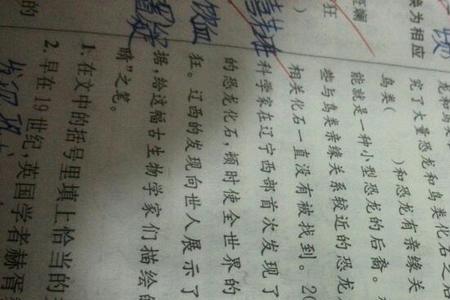 换为相应
狂
究了大量恐龙和鸟类化石之后
鸟类( )和恐龙有亲缘关
能就是一种小型恐龙的后裔。
些与鸟类亲缘关系较近的恐龙
相关化石一直没有被找到。20
科学家在辽宁西部首次发现了
的恐龙化石,顿时使全世界的
狂。辽西的发现向世人展示了
据,给这幅古生物学家们描绘的
睛”之笔。
1.在文中的括号里填上恰当的
2.早在19世纪,英国学者赫胥